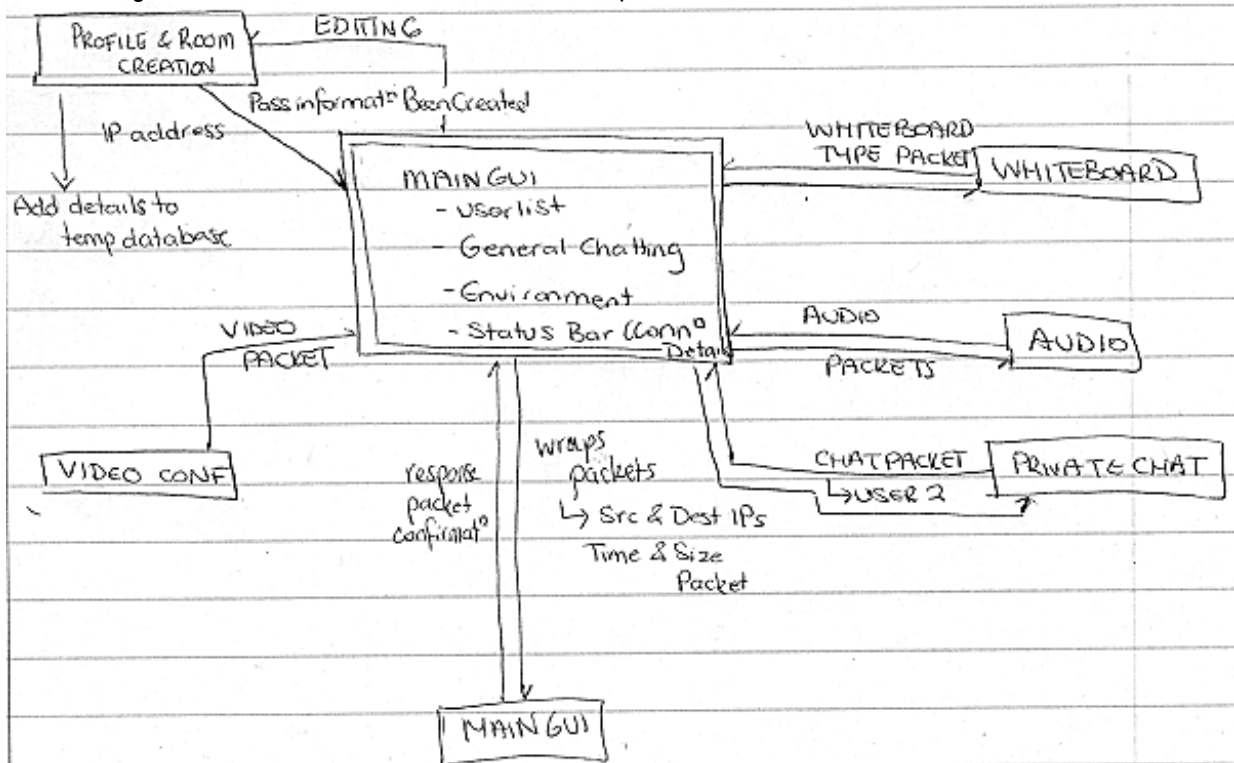 PROFILE & ROOM
CREATION
EDITING
Pass informatⁿ Been Created
IP address
Add details to
temp database
MAIN GUI
- User list
- General Chatting
- Environment
- Status Bar (Connⁿ
Details
WHITEBOARD
TYPE PACKET
WHITEBOARD
VIDEO
PACKET
VIDEO CONF
AUDIO
PACKETS
AUDIO
CHAT PACKET
USER 2
PRIVATE CHAT
response
packet
confirmatⁿ
wraps
packets
↳ Src & Dest IPs
Time & Size
Packet
MAIN GUI